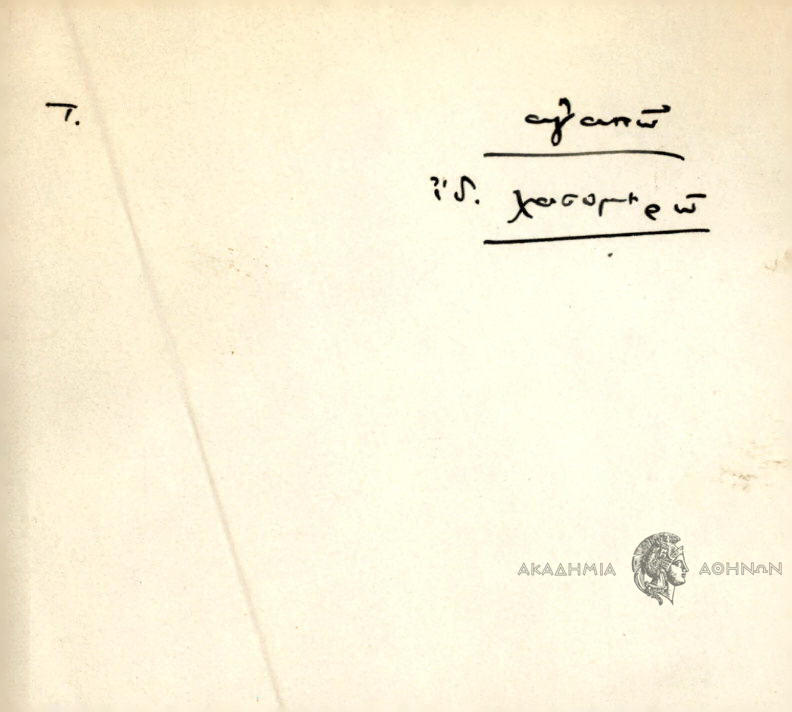 Τ.
ἀγαπῶ
ἰδ. χασομερῶ
ΑΚΑΔΗΜΙΑ ΑΘΗΝΩΝ